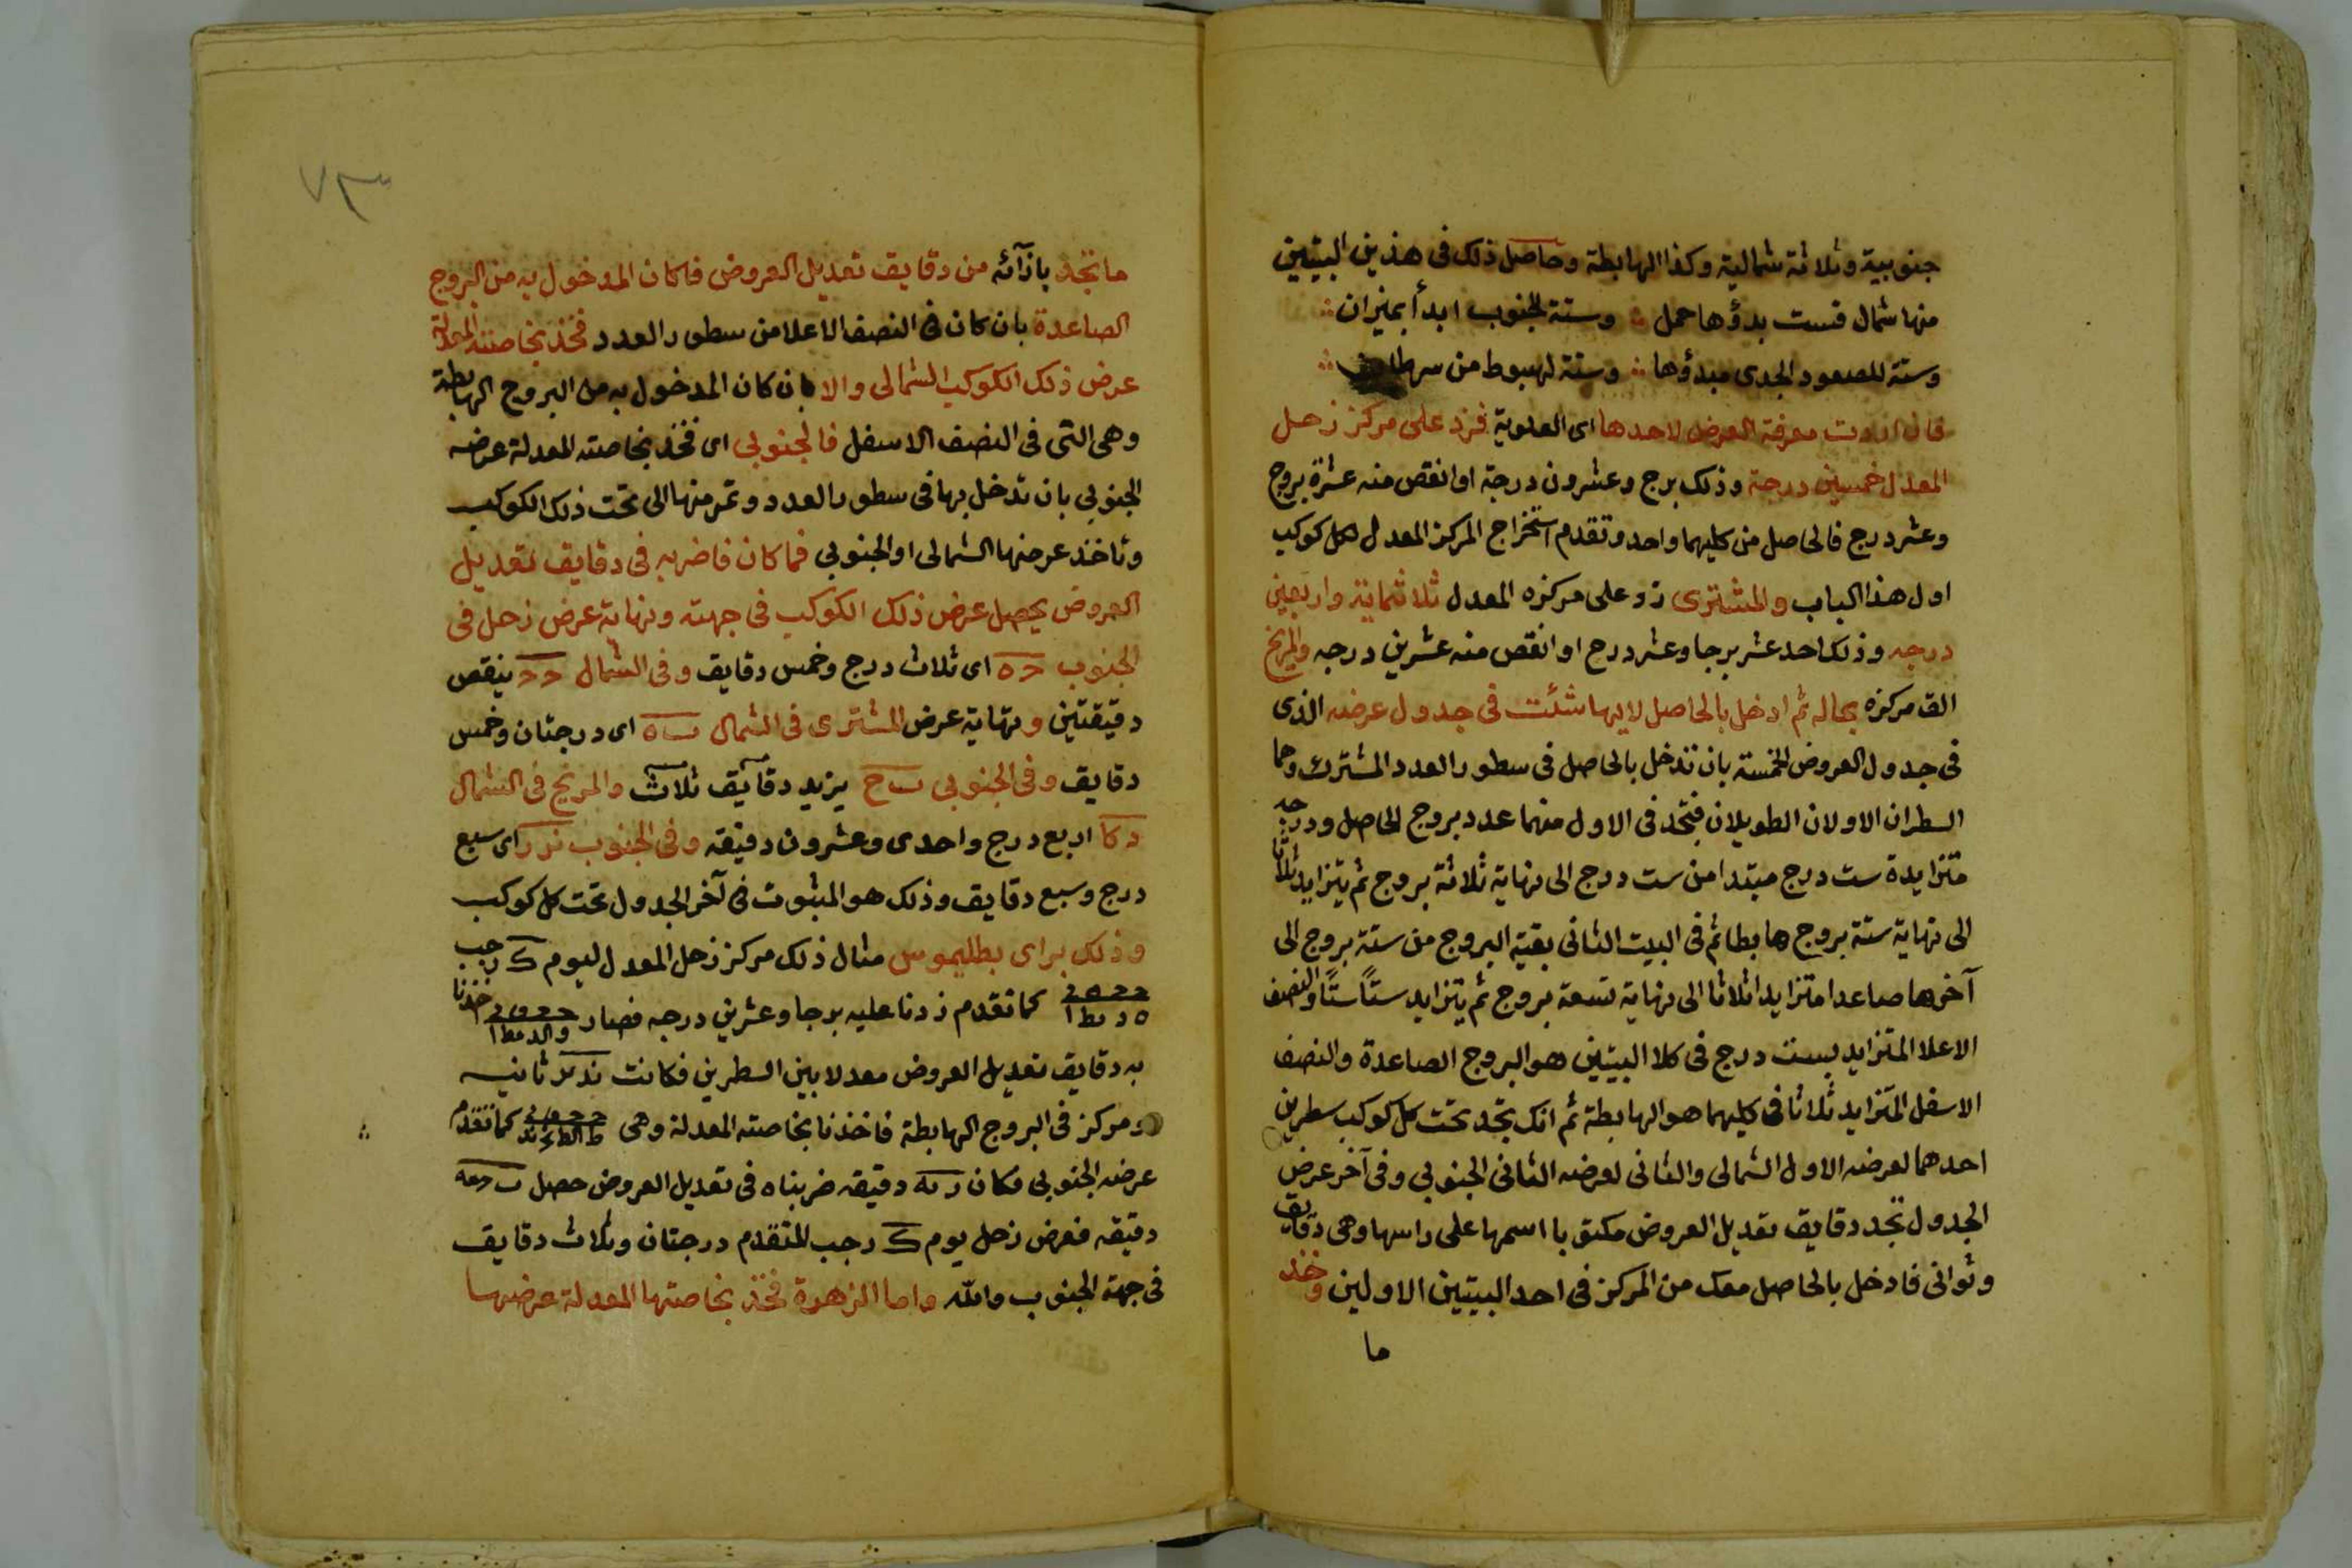 جنوبية وثلاثة شمالية وكذا الهابطة وحاصل ذلك فى هذين البيتين
منها شمال فست بدؤها حمل ∴ وستة لجنوب ابدأ بميزان ∴
وستة للصعود الجدى مبدؤها ∴ وستة لهبوط من سرطان ∴
فان اردت معرفة العرض لاحدها اى العلوية فزد على مركز زحل
المعدل خمسين درجة وذلك برج وعشرون درجة او انقص منه عشرة بروج
وعشر درج فالحاصل من كليهما واحد وتقدم استخراج المركز المعدل لكل كوكب
اول هذا الباب والمشترى زد على مركزه المعدل ثلاثماية واربعين
درجه وذلك احد عشر برجا وعشر درج او انقص منه عشرين درجه والمريخ
الق مركزه بحاله ثم ادخل بالحاصل لايها شئت فى جدول عرضه الذى
فى جدول العروض الخمسة بان تدخل بالحاصل فى سطور العدد المشترك وهما
السطران الاولان الطويلان فتجد فى الاول منهما عدد بروج الحاصل ودرجه
متزايدة ست درج مبتدا من ست درج الى نهاية ثلاثة بروج ثم يتزايد ثلاثا
الى نهاية ستة بروج هابطا ثم فى البيت الثانى بقية البروج من ستة بروج الى
آخرها صاعدا متزايدا ثلاثا الى نهاية تسعة بروج ثم يتزايد ستًا ستًا والنصف
الاعلا المتزايد بست درج فى كلا البيتين هو البروج الصاعدة والنصف
الاسفل المتزايد ثلاثا فى كليهما هو الهابطة ثم انك تجد تحت كل كوكب سطرين
احدهما لعرضه الاول الشمالى والثانى لعرضه الثانى الجنوبي وفى آخر عرض
الجدول تجد دقايق تعديل العروض مكتوبا اسمها على راسها وهى دقايق
وثوانى فادخل بالحاصل معك من المركز فى احد البيتين الاولين وخذ
ما
٧٣
ما تجد بازآئه من دقايق تعديل العروض فان كان المدخول به من البروج
الصاعدة بان كان فى النصف الاعلا من سطور العدد فخذ بخاصته المعدلة
عرض ذلك الكوكب الشمالى والا بان كان المدخول به من البروج الهابطة
وهى التى فى النصف الاسفل فالجنوبي اى فخذ بخاصته المعدلة عرضه
الجنوبي بان تدخل بها فى سطور العدد وتمر منها الى تحت ذلك الكوكب
وتاخذ عرضها الشمالى او الجنوبي فما كان فاضربه فى دقايق تعديل
العروض يحصل عرض ذلك الكوكب فى جهته ونهاية عرض زحل فى
الجنوب ح ه اى ثلاث درج وخمس دقايق وفى الشمال ح ح ينقص
دقيقتين ونهاية عرض المشترى فى الشمال ب ه اى درجتان وخمس
دقايق وفى الجنوبي ب ح يزيد دقايق ثلاث والمريخ فى الشمال
د كا اربع درج واحدى وعشرون دقيقه وفى الجنوب ز ز اى سبع
درج وسبع دقايق وذلك هو المثبوت فى آخر الجدول تحت كل كوكب
وذلك براى بطليموس مثال ذلك مركز زحل المعدل ليوم ك رجب
كما تقدم زدنا عليه برجا وعشرين درجه فصار اخذنا
به دقايق تعديل العروض معدلا بين السطرين فكانت ثانيه
ومركز فى البروج الهابطة فاخذنا بخاصته المعدلة وهى كما تقدم
عرضه الجنوبي فكان دقيقه ضربناه فى تعديل العروض حصل
دقيقه فعرض زحل يوم ك رجب المتقدم درجتان وثلاث دقايق
فى جهة الجنوب والله واما الزهرة فخذ بخاصتها المعدلة عرضها